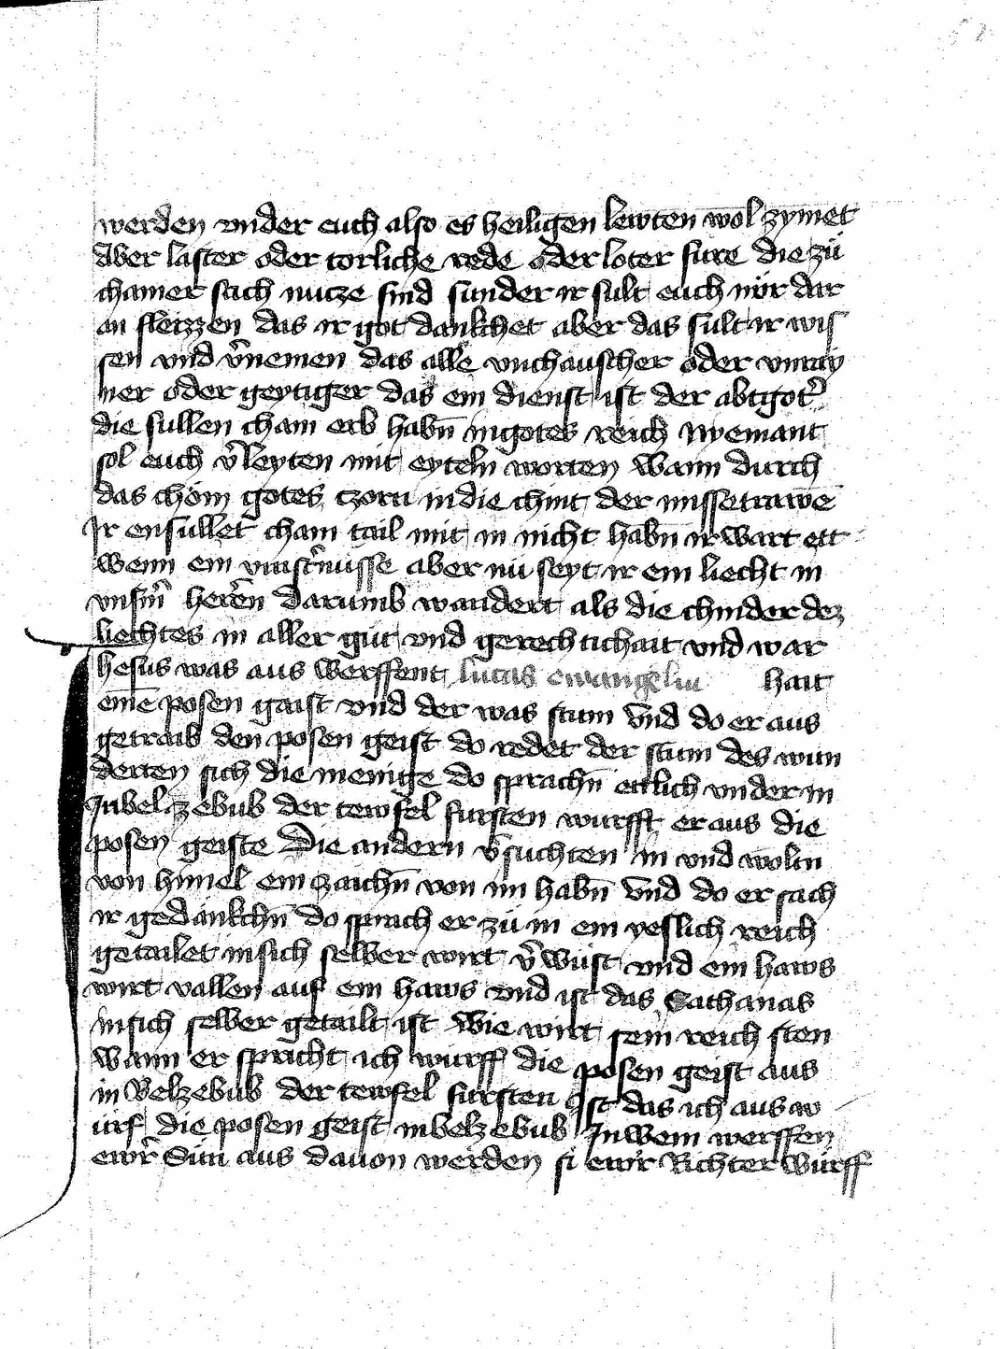 werden vnder euch also es heiligen lewten wol zymet
Aber laster oder torliche rede oder loter fure die zů
chamer sach nucze sind sunder ir sult euch nůr dar
an fleizzen das ir got dankchet aber das sult ir wis
sen vnd v̄nemen das alle vnchauscher oder vnray
ner oder geytiger das ein dienst ist der abtgot̄
die sullen cham erb habn̄ in gotes reich Nyemant
sol euch v̄leyten mit eyteln worten Wann durch
das chöm gotes czorn in die chint der missetrawē
Ir ensullet cham tail mit in nicht habn̄ ir wart ett
wenn ein vinst̄nüsse aber nu seyt ir ein liecht in
vnsm̄ herēn Darumb wandert als die chinder dez
liechtes in aller güt vnd gerechtichait vnd war
hait
Ihesus was aus werffent lucas ewangeliu
einē posen gaist vnd der was stum vnd do er aus
getraib den posen geist do redet der stum des wun
derten sich die menige do sprachn̄ ettlich vnder in
In belzebub der tewfel fursten wurfft er aus die
posen geiste Die andern v̄suchten in vnd woltn
von himel ein zaichn̄ von im habn̄ vnd do er sach
ir gedänkchn̄ do sprach er zů in ein yeslich reich
getailet in sich selber wirt v̄wüst vnd ein haws
wirt vallen auf ein haws vnd ist das Sathanas
in sich selber getailt ist wie wirt sein reich sten
Wann er spricht ich würff die posen geist aus
in Belzebub der tewfel fürsten Ist das ich aus w
ürf die posen geist in belzebub In wem werffen
ewr̄ Sün aus dauon werden si ewr̄ Richter Würff